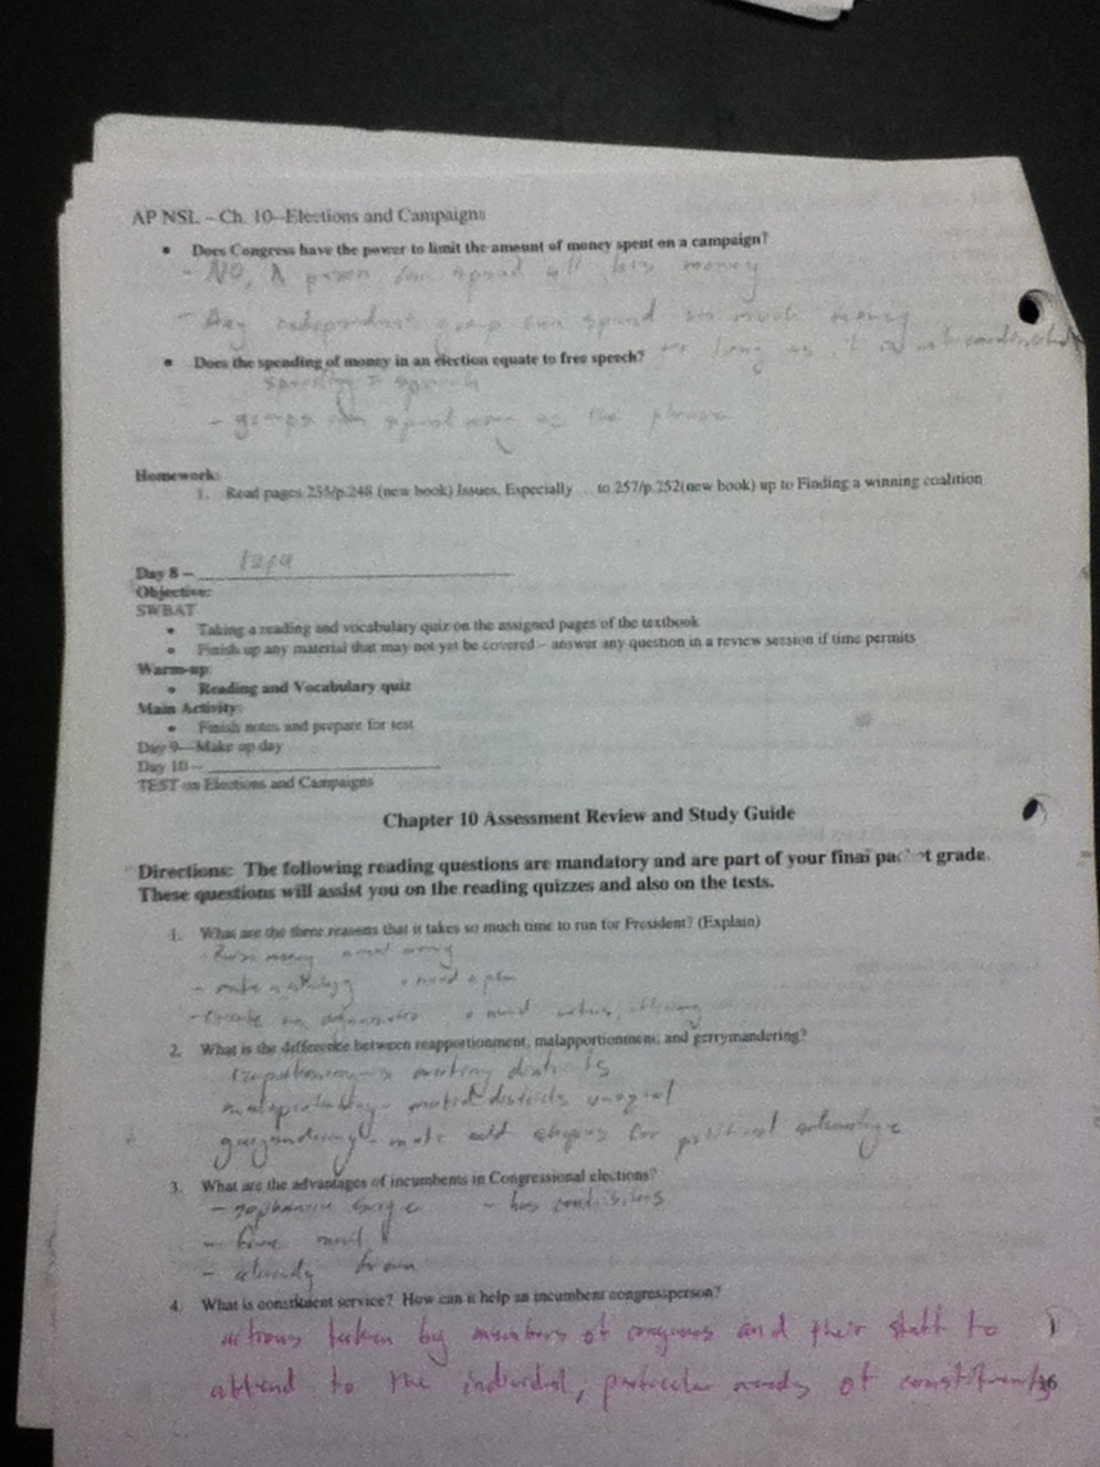 AP NSL – Ch. 10--Elections and Campaigns
• Does Congress have the power to limit the amount of money spent on a campaign?
- NO, A person can spend all his money
- Any independent group can spend as much money
as long as it is not coordinated
• Does the spending of money in an election equate to free speech?
spending = speech
- groups can spend money as the please
Homework:
1. Read pages 253/p.248 (new book) Issues, Especially … to 257/p.252(new book) up to Finding a winning coalition
Day 8 –
Objective:
SWBAT
• Taking a reading and vocabulary quiz on the assigned pages of the textbook
• Finish up any material that may not yet be covered – answer any question in a review session if time permits
Warm-up:
• Reading and Vocabulary quiz
Main Activity:
• Finish notes and prepare for test
Day 9—Make up day
Day 10 –
TEST on Elections and Campaigns
Chapter 10 Assessment Review and Study Guide
Directions: The following reading questions are mandatory and are part of your final packet grade.
These questions will assist you on the reading quizzes and also on the tests.
1. What are the three reasons that it takes so much time to run for President? (Explain)
- Raise money need money
- make a strategy • need a plan
• need
2. What is the difference between reapportionment, malapportionment, and gerrymandering?
making districts
districts unequal
gerrymandering - make odd shapes for political advantage
3. What are the advantages of incumbents in Congressional elections?
- has contributions
- free mail
- already known
4. What is constituent service? How can it help an incumbent congressperson?
actions taken by members of congress and their staff to
attend to the individual, particular needs of constituents
16